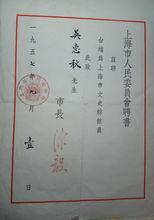 上海市人民委員會聘書
茲聘
台端為上海市文史館館員
此致
吳志秋先生
市長
一九五七年 月壹日